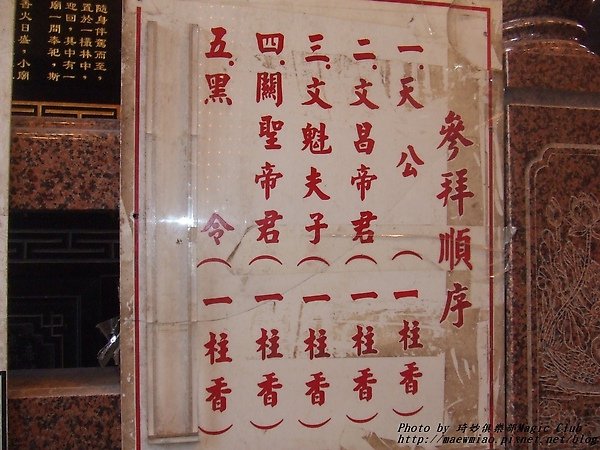 參拜順序
一.天公（一柱香）
二.文昌帝君（一柱香）
三.文魁夫子（一柱香）
四.關聖帝君（一柱香）
五.黑令（一柱香）
隨身伴駕而至，
置於一林中，
迎回，其中有一
廟一間奉祀，斯
香火日盛，小廟
Photo by 琦妙俱樂部Magic Club
http://maewmiao.pixnet.net/blog